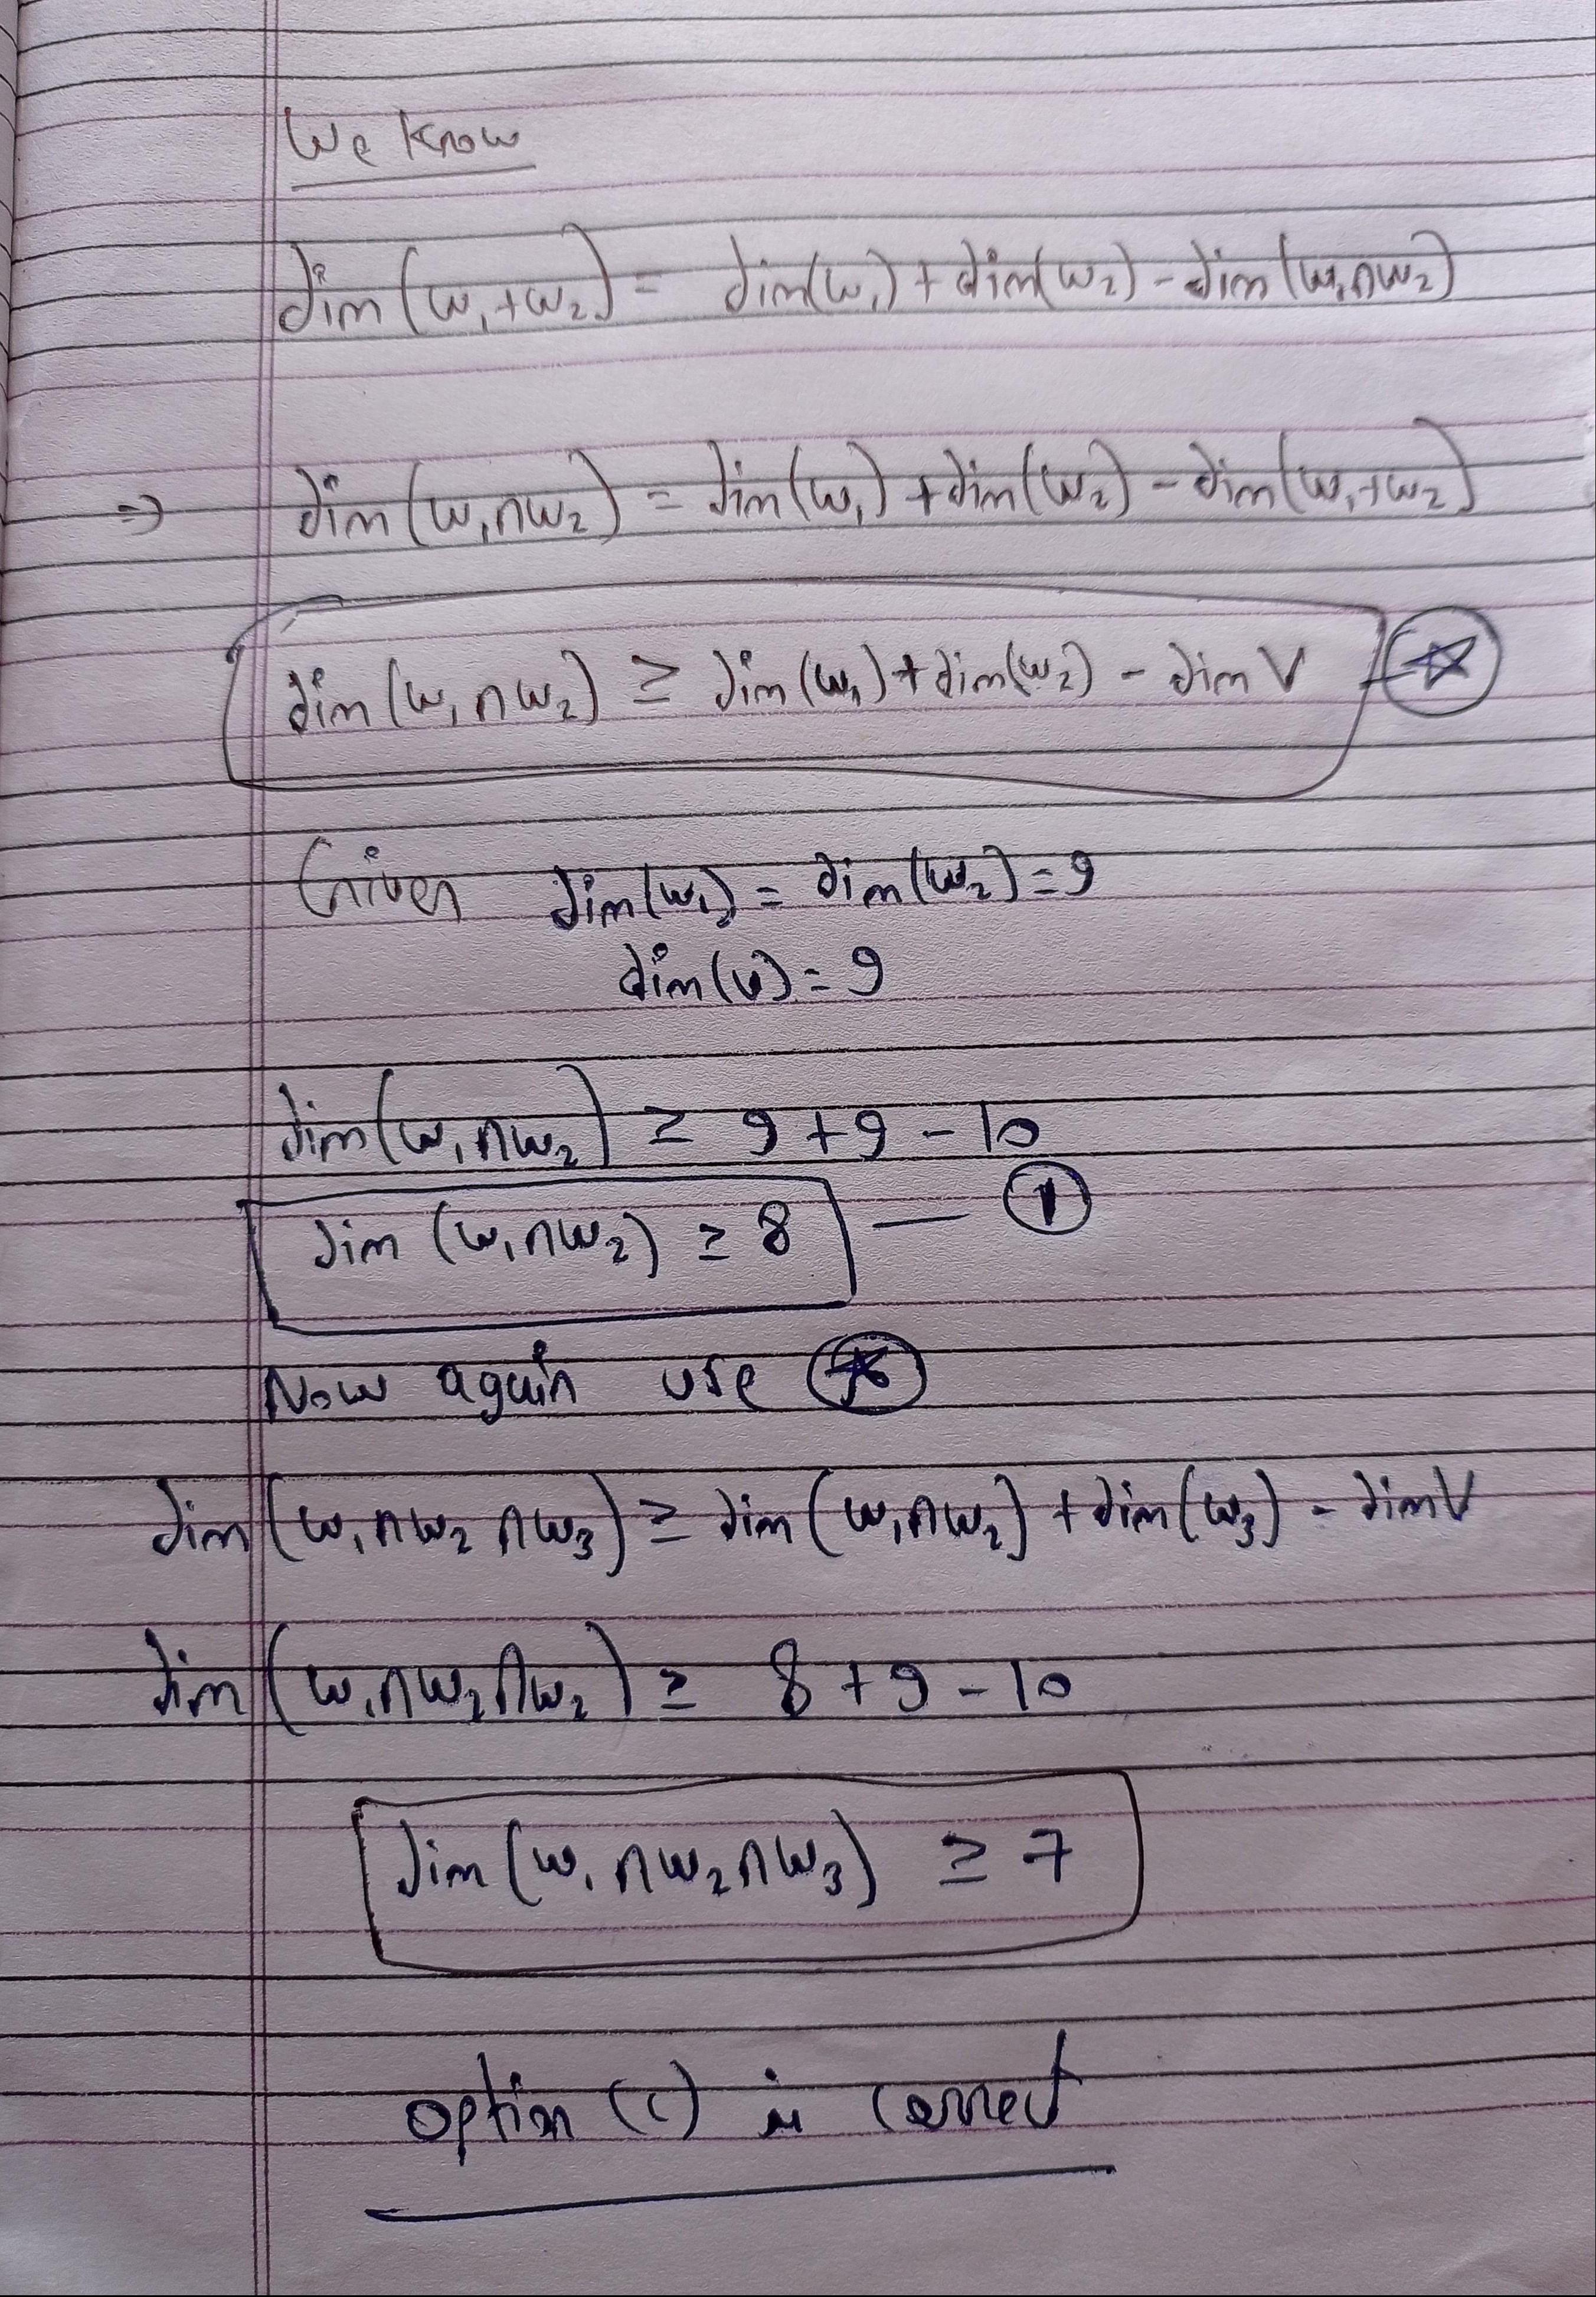 We know
dim(w₁+w₂) = dim(w₁)+dim(w₂)-dim(w₁∩w₂)
⇒ dim(w₁∩w₂) = dim(w₁)+dim(w₂)-dim(w₁+w₂)
dim(w₁∩w₂) ≥ dim(w₁)+dim(w₂)-dim V -☆
Given dim(w₁) = dim(w₂)=9
dim(v)=9
dim(w₁∩w₂) ≥ 9+9-10
dim(w₁∩w₂) ≥ 8 — ①
Now again use ☆
dim(w₁∩w₂∩w₃) ≥ dim(w₁∩w₂)+dim(w₃)-dimV
dim(w₁∩w₂∩w₂) ≥ 8+9-10
dim(w₁∩w₂∩w₃) ≥ 7
option (c) is correct